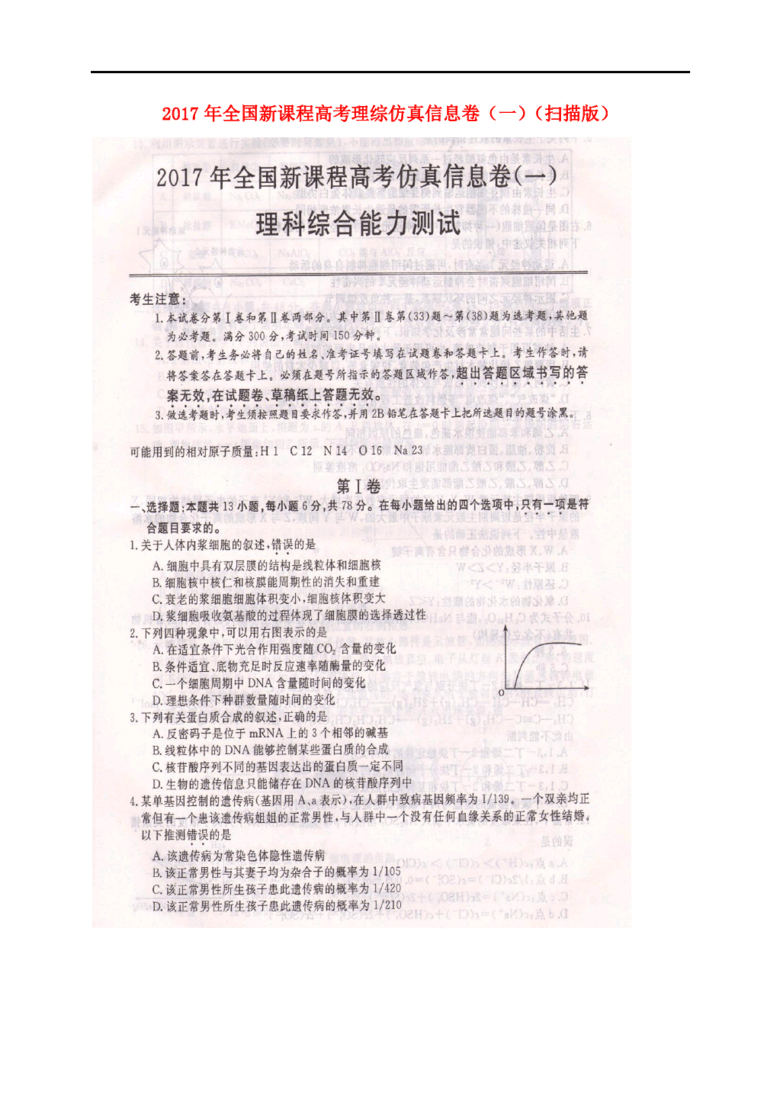 2017 年全国新课程高考理综仿真信息卷（一）（扫描版）
2017 年全国新课程高考仿真信息卷(一)
理科综合能力测试
考生注意:
1.本试卷分第Ⅰ卷和第Ⅱ卷两部分。其中第Ⅱ卷第(33)题～第(38)题为选考题,其他题
为必考题。满分 300 分,考试时间 150 分钟。
2.答题前,考生务必将自己的姓名、准考证号填写在试题卷和答题卡上。考生作答时,请
将答案答在答题卡上。必须在题号所指示的答题区域作答,超出答题区域书写的答
案无效,在试题卷、草稿纸上答题无效。
3.做选考题时,考生须按照题目要求作答,并用 2B 铅笔在答题卡上把所选题目的题号涂黑。
可能用到的相对原子质量:H 1 C 12 N 14 O 16 Na 23
第Ⅰ卷
一、选择题:本题共 13 小题,每小题 6 分,共 78 分。在每小题给出的四个选项中,只有一项是符
合题目要求的。
1.关于人体内浆细胞的叙述,错误的是
A.细胞中具有双层膜的结构是线粒体和细胞核
B.细胞核中核仁和核膜能周期性的消失和重建
C.衰老的浆细胞细胞体积变小,细胞核体积变大
D.浆细胞吸收氨基酸的过程体现了细胞膜的选择透过性
2.下列四种现象中,可以用右图表示的是
A.在适宜条件下光合作用强度随 CO₂ 含量的变化
B.条件适宜、底物充足时反应速率随酶量的变化
C.一个细胞周期中 DNA 含量随时间的变化
D.理想条件下种群数量随时间的变化
O
3.下列有关蛋白质合成的叙述,正确的是
A.反密码子是位于 mRNA 上的 3 个相邻的碱基
B.线粒体中的 DNA 能够控制某些蛋白质的合成
C.核苷酸序列不同的基因表达出的蛋白质一定不同
D.生物的遗传信息只能储存在 DNA 的核苷酸序列中
4.某单基因控制的遗传病(基因用 A、a 表示),在人群中致病基因频率为 1/139。一个双亲均正
常但有一个患该遗传病姐姐的正常男性,与人群中一个没有任何血缘关系的正常女性结婚。
以下推测错误的是
A.该遗传病为常染色体隐性遗传病
B.该正常男性与其妻子均为杂合子的概率为 1/105
C.该正常男性所生孩子患此遗传病的概率为 1/420
D.该正常男性所生孩子患此遗传病的概率为 1/210